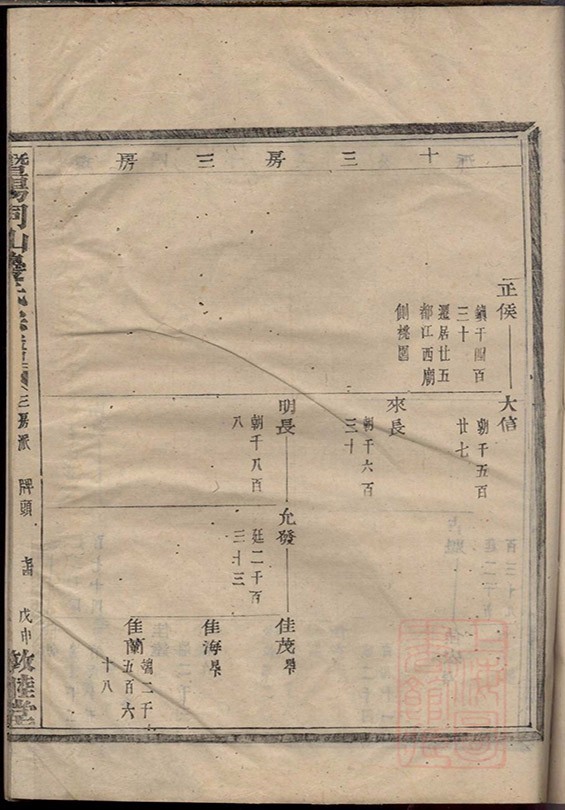 十三房三房
正侯
鎮千四百
三十
遷居廿五
都江西廟
側桃園
大信
朝千五百
廿七
來長
朝千六百
三十
明長
朝千八百
八
允發
廷二千百
三十三
佳茂
佳海
佳蘭
二千
五百六
十八
暨陽同山
三房派
牌頭
戊申
敦睦堂